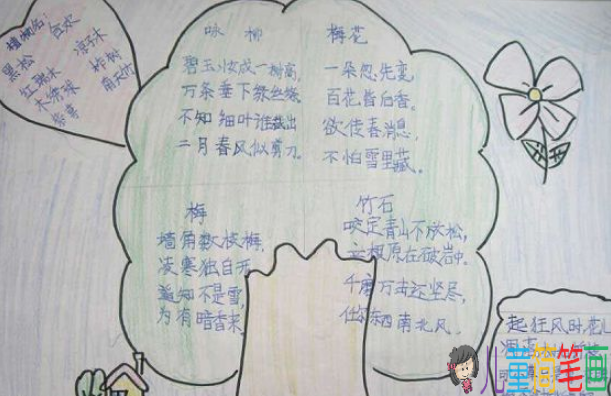 植物名:
合欢
黑松
凉子木
红继木
柞树
木绣球
南天竹
紫薇
咏柳
碧玉妆成一树高,
万条垂下绿丝绦。
不知细叶谁裁出
二月春风似剪刀。
梅花
一朵忽先变,
百花皆后香。
欲传春消息,
不怕雪里藏。
梅
墙角数枝梅,
凌寒独自开。
遥知不是雪,
为有暗香来。
竹石
咬定青山不放松,
立根原在破岩中。
千磨万击还坚尽,
任尔东西南北风。
起狂风时,花儿
儿童简笔画